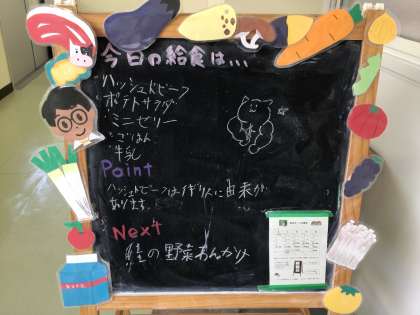 今日の給食は...
ハッシュドビーフ
ポテトサラダ
ミニゼリー
ごはん
牛乳
Point
ハッシュドビーフはイギリスに由来が
あります。
Next
鮭の野菜あんかけ